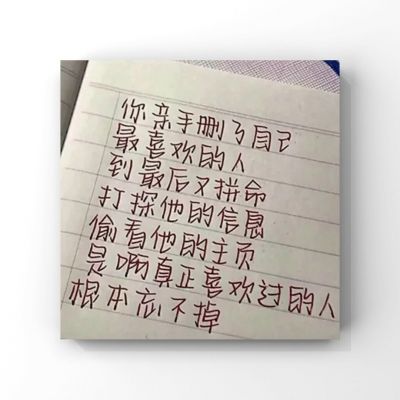 你亲手删了自己
最喜欢的人
到最后又拼命
打探他的信息
偷看他的主页
是啊真正喜欢过的人
根本忘不掉